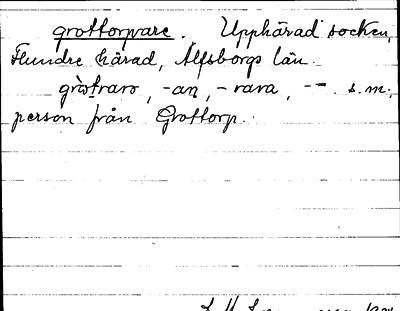 grottorpare. Upphärad socken,
Flundre härad, Älfsborgs län.
gròtraro, -an, -rara, -- s.m.;
person från Grottorp.